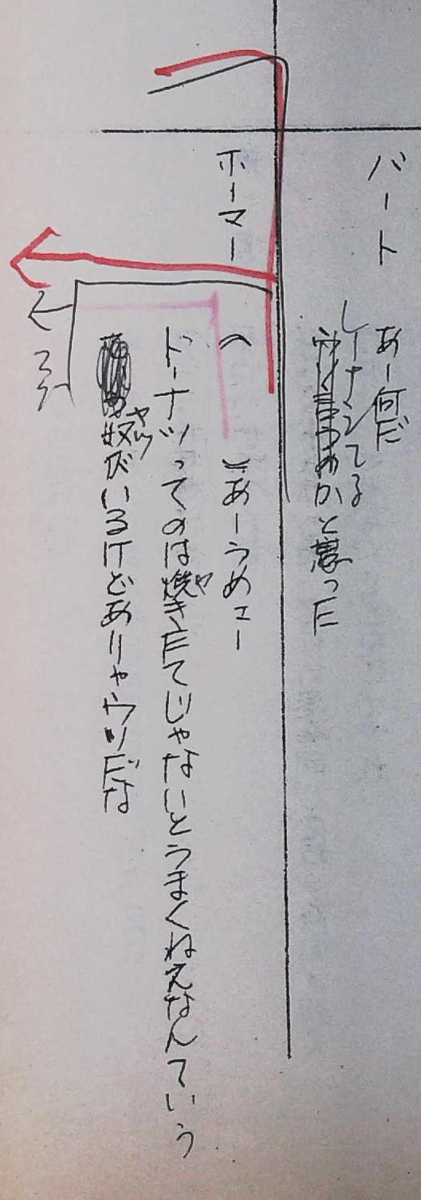 バート あー何だ
レイナシてるかと思った
ホーマー ( )あーうめェー
ドーナツってのは焼きたてじゃないとうまくねえなんていう
奴がいるけどありゃウソだな
ヤ
ヤツ